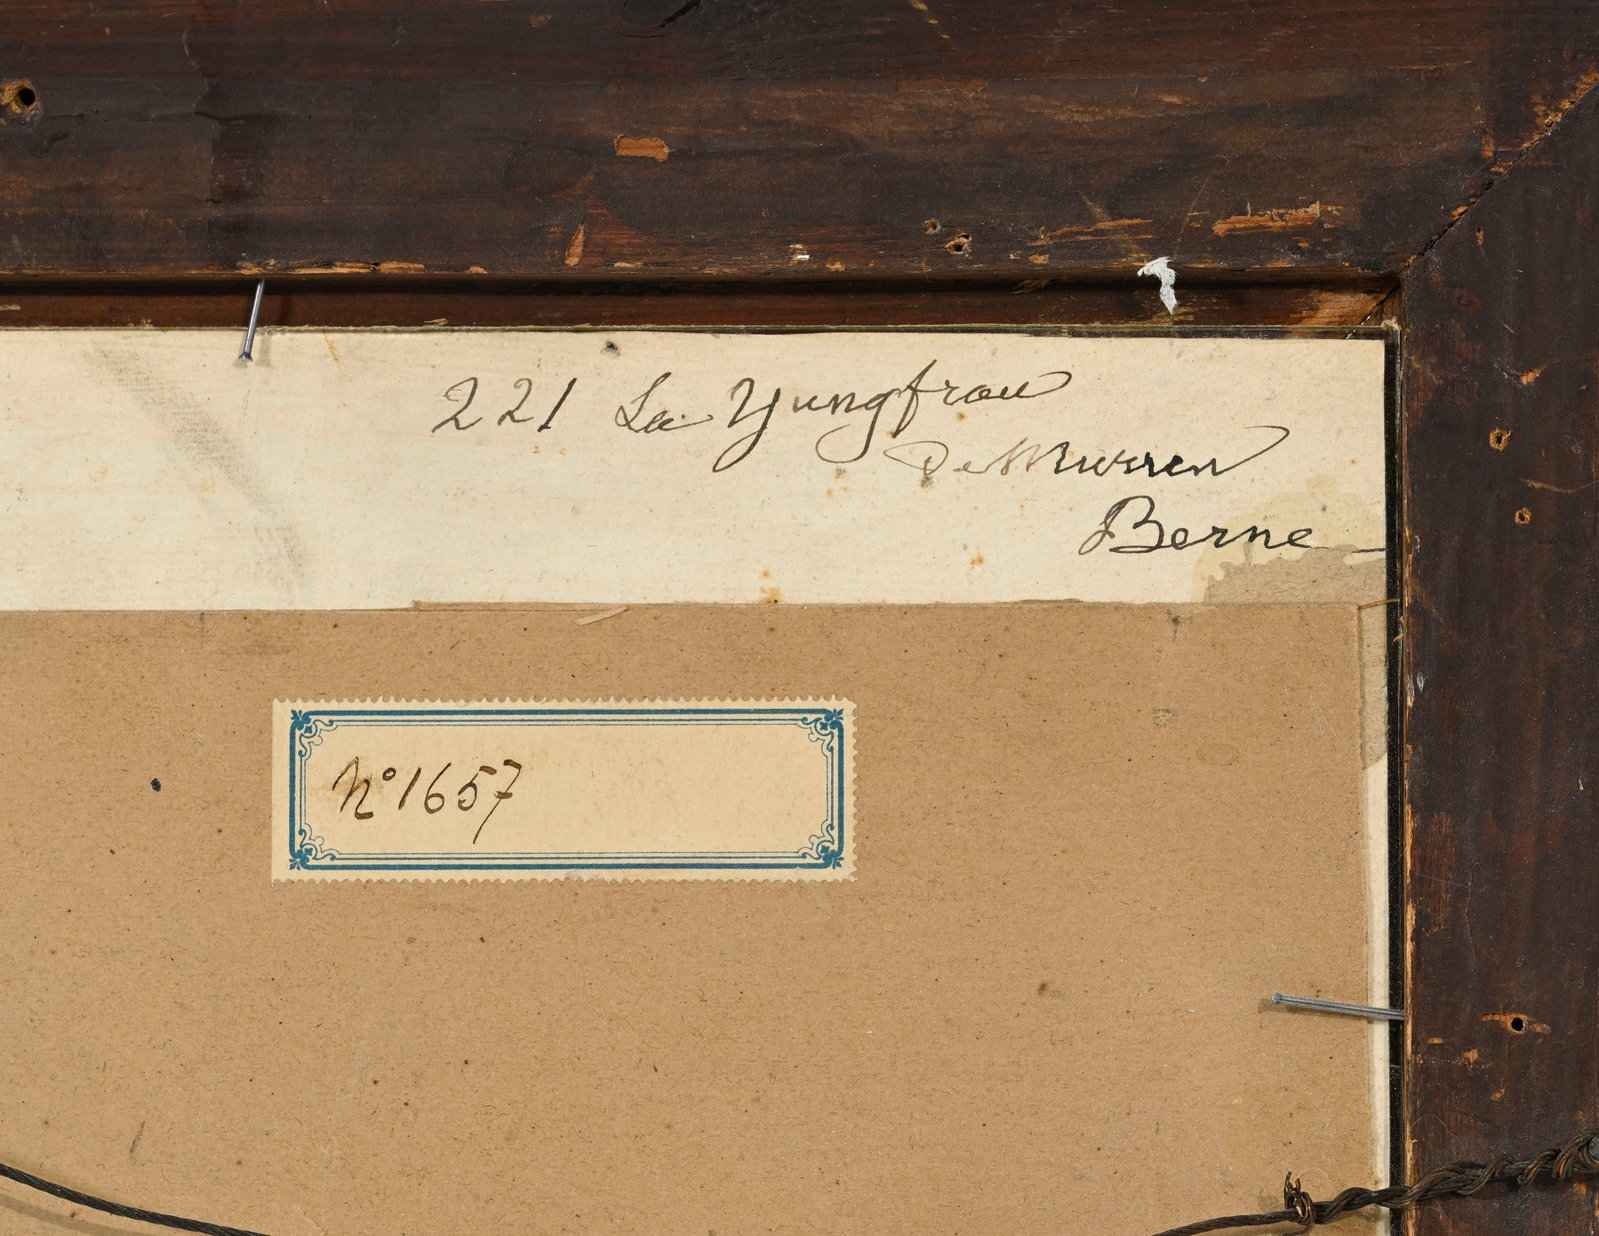 221 La Yungfrau
De Murren
Berne
N° 1657